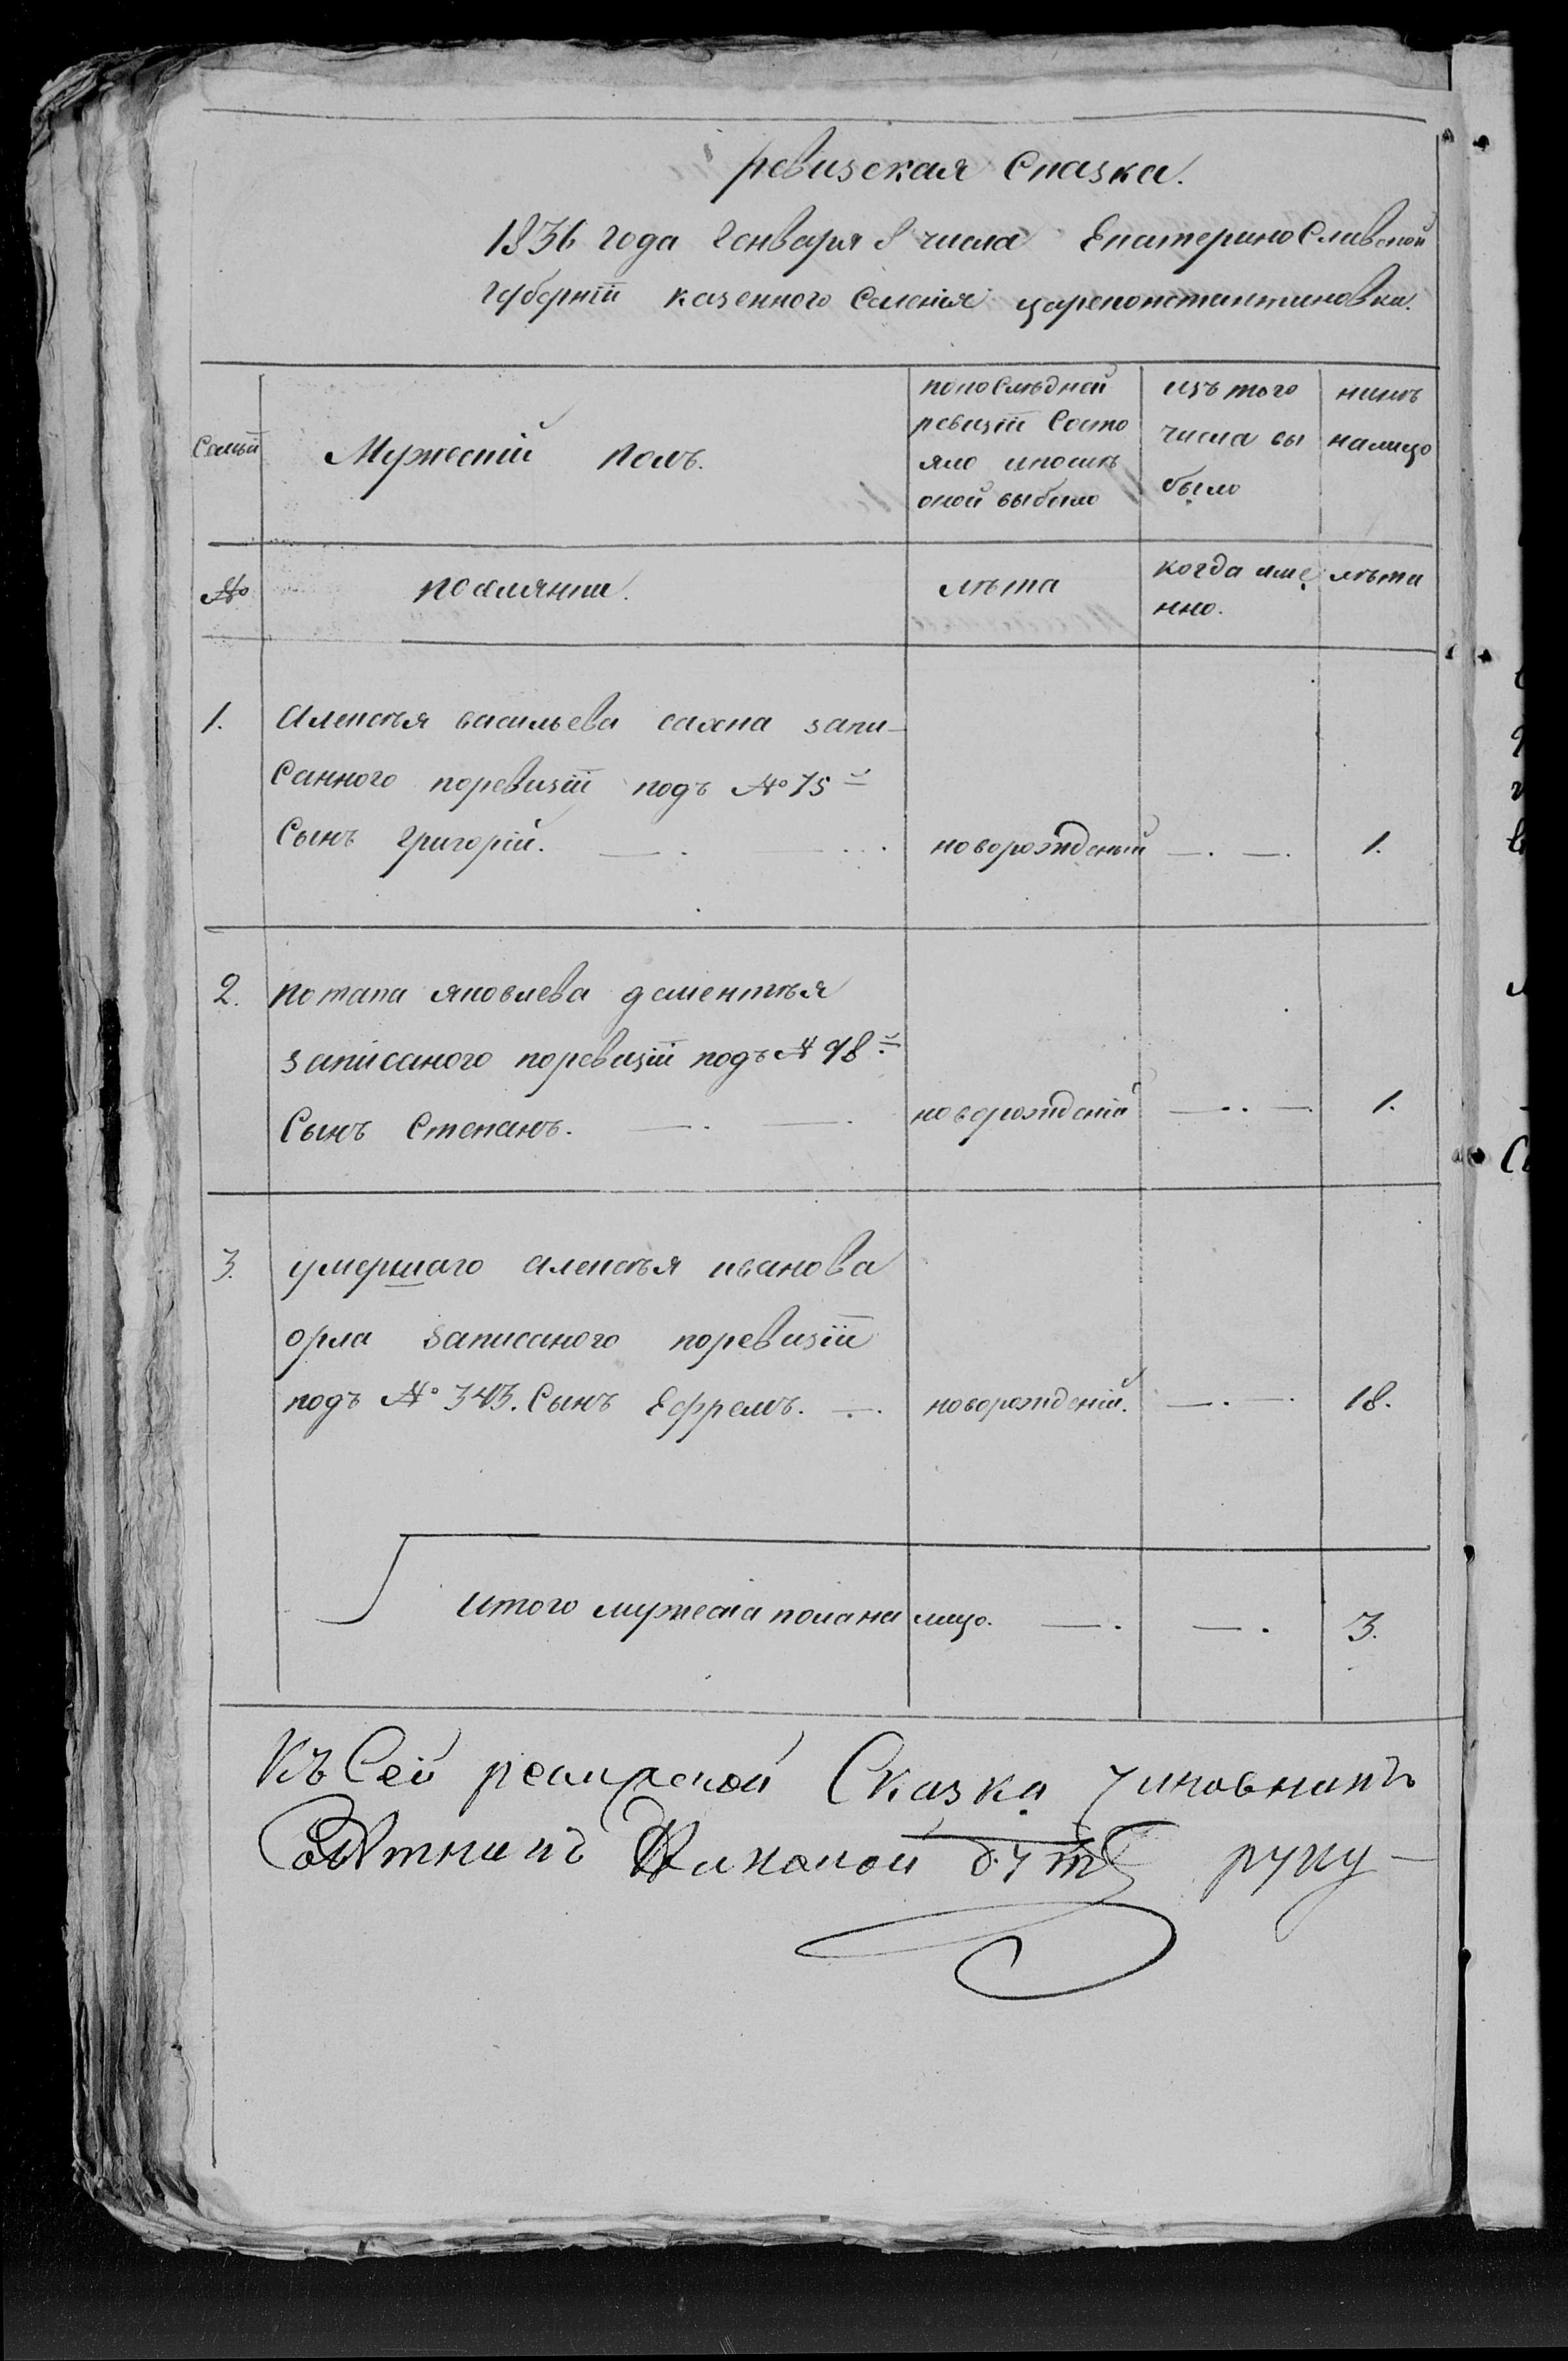 ревизская Сказка.
1836 года Генваря 8 числа Екатерино Славской
Губернїи казенного Селенїя цареконстантиновки.
Семьи
Мужескїй полъ.
попослѣдней
ревизїи Состо
яло ипослѣ
оной выбыло
изъ того
числа вы
было
нинѣ
налицо
№
поселяни.
лѣта
когда име
нно.
лѣта
1. Алексѣя васильева сахна запи-
Санного поревизїи подъ № 75й
Сынъ Григорїй. — . . . . новорожденый — . — . 1.
2. потапа яковлева дементѣя
записаного поревизїи подъ № 98й
Сынъ Степанъ. — . — . новорожденїй — . . — . 1.
3. умершаго алексѣя иванова
орла записаного поревизїи
подъ № 343. Сынъ Ефремъ. — . новорожденїй. — . — . 18.
итого мужеска пола на лицо. — . — . 3.
Къ Сей ревизской Сказки чиновникъ
руку